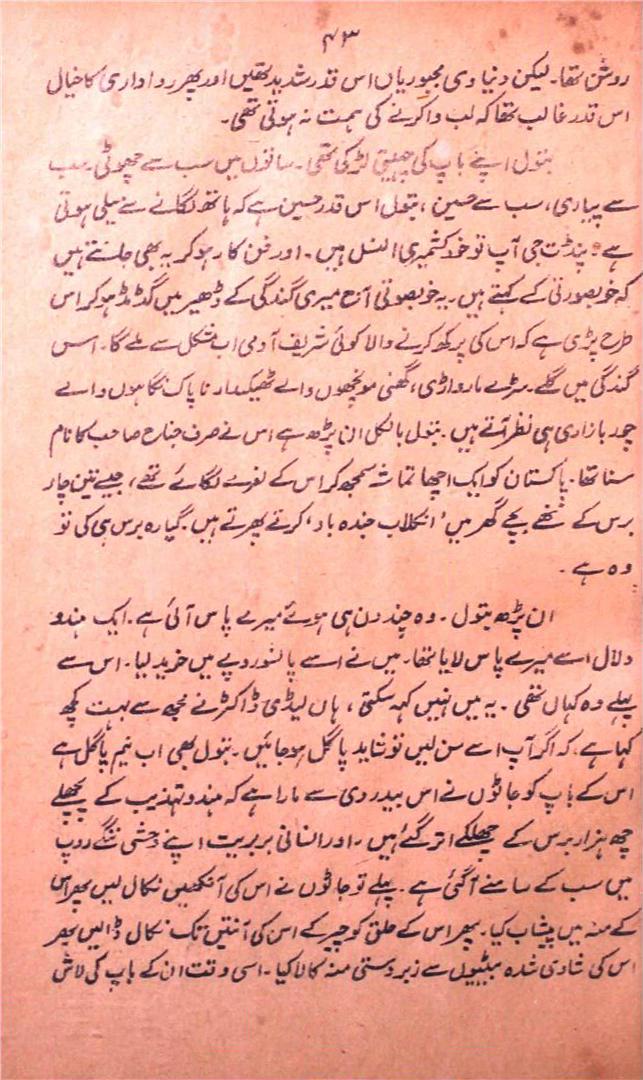 ۴۳
روشن تھا۔ لیکن دنیاوی مجبوریاں اس قدر شدید تھیں اور پھر رواداری کا خیال
اس قدر غالب تھا کہ لب وا کرنے کی ہمت نہ ہوتی تھی۔
بتول اپنے باپ کی چہیتی لڑکی تھی۔ ساتوں میں سب سے چھوٹی۔ سب
سے پیاری، سب سے حسین، بتول اس قدر حسین ہے کہ ہاتھ لگانے سے میلی ہوتی
ہے۔ پنڈت جی آپ تو خود کشمیری النسل ہیں۔ اور فن کار ہو کر یہ بھی جانتے ہیں
کہ خوبصورتی کسے کہتے ہیں۔ یہ خوبصورتی آج میری گندگی کے ڈھیر میں گڈمڈ ہو کر اس
طرح پڑی ہے کہ اس کی پرکھ کرنے والا کوئی شریف آدمی اب مشکل سے ملے گا۔ اس
گندگی میں گلے سڑے مارواڑی، گھنی مونچھوں والے ٹھیکیدار ناپاک نگاہوں والے
چور بازاری ہی نظر آتے ہیں۔ بتول بالکل ان پڑھ ہے اس نے صرف جناح صاحب کا نام
سنا تھا۔ پاکستان کو ایک اچھا تماشہ سمجھ کر اس کے نعرے لگائے تھے، جیسے تین چار
برس کے ننھے بچے گھر میں 'انکلاب جندہ باد' کرتے پھرتے ہیں۔ گیارہ برس ہی کی تو
وہ ہے۔
ان پڑھ بتول۔ وہ چند دن ہی ہوئے میرے پاس آئی ہے۔ ایک ہندو
دلال اسے میرے پاس لایا تھا۔ میں نے اسے پانسو روپے میں خرید لیا۔ اس سے
پہلے وہ کہاں تھی۔ یہ میں نہیں کہہ سکتی، ہاں لیڈی ڈاکٹر نے مجھ سے بہت کچھ
کہا ہے، کہ اگر آپ اسے سن لیں تو شاید پاگل ہو جائیں۔ بتول بھی اب نیم پاگل ہے
اس کے باپ کو جاٹوں نے اس بیدردی سے مارا ہے کہ ہندو تہذیب کے پچھلے
چھ ہزار برس کے چھلکے اتر گئے ہیں۔ اور انسانی بربریت اپنے وحشی ننگے روپ
میں سب کے سامنے آگئی ہے۔ پہلے تو جاٹوں نے اس کی آنکھیں نکال لیں پھر اس
کے منہ میں پیشاب کیا۔ پھر اس کے حلق کو چیر کے اس کی آنتیں تک نکال ڈالیں پھر
اس کی شادی شدہ بیٹیوں سے زبردستی منہ کالا کیا۔ اسی وقت ان کے باپ کی لاش